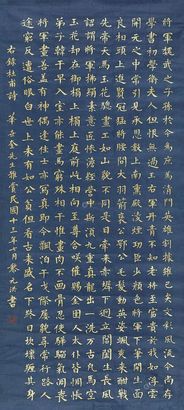 將軍魏武之子孫於今為庶為清門英雄割據雖已矣文彩風流今尚存
學書初學衛夫人但恨無過王右軍丹青不知老將至富貴於我如浮雲
開元之中常引見承恩數上南薰殿凌煙功臣少顏色將軍下筆開生面
良相頭上進賢冠猛將腰間大羽箭褒公鄂公毛髮動英姿颯爽來酣戰
先帝天馬玉花驄畫工如山貌不同是日牽來赤墀下迥立閶闔生長風
詔謂將軍拂絹素意匠慘澹經營中斯須九重真龍出一洗萬古凡馬空
玉花卻在御榻上榻上庭前屹相向至尊含笑催賜金圉人太僕皆惆悵
弟子韓幹早入室亦能畫馬窮殊相幹惟畫肉不畫骨忍使驊騮氣凋喪
將軍畫善蓋有神偶逢佳士亦寫真即今漂泊干戈際屢貌尋常行路人
途窮反遭俗眼白世上未有如公貧但看古來盛名下終日坎壈纏其身
右錄杜甫詩 金先生雅賞民國十一年七月黎元洪書